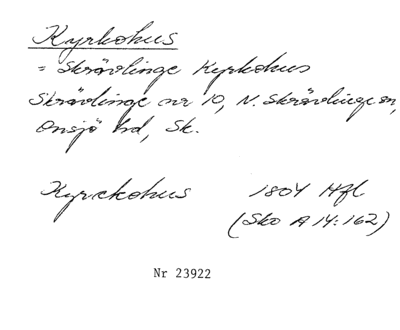 Kyrkohus
= Skrävlinge Kyrkohus
Skrävlinge nr 10, N. Skrävlinge sn,
Onsjö hd, Sk.
Kyrckohus 1804 Hfl
(Sko A 14:162)
Nr 23922